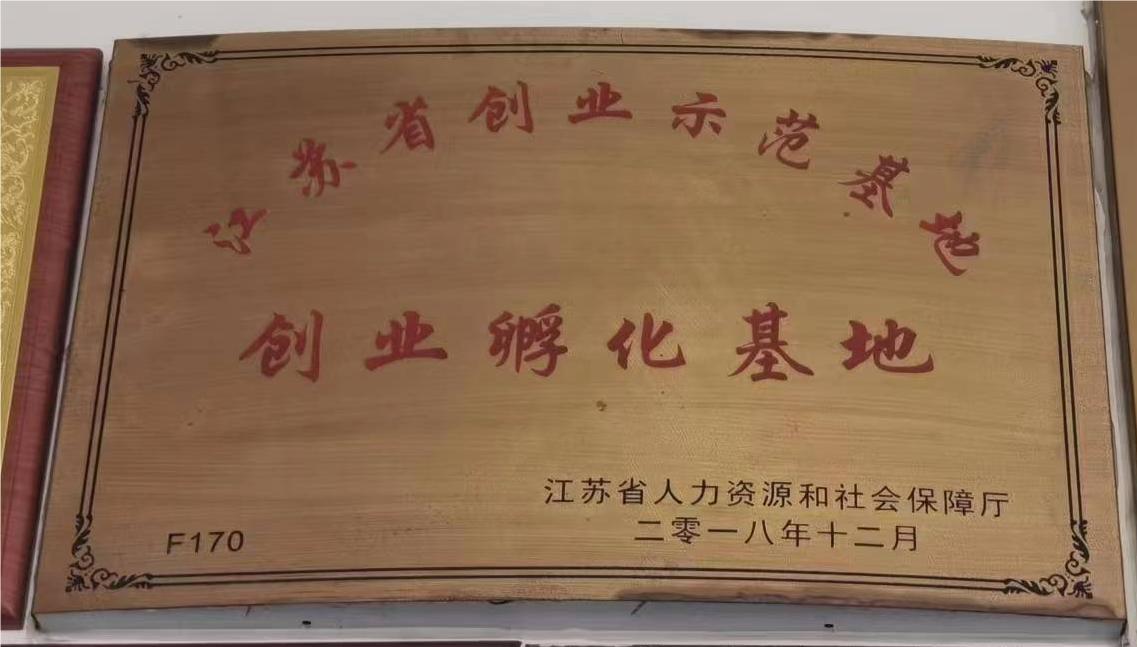 江苏省创业示范基地
创业孵化基地
江苏省人力资源和社会保障厅
二零一八年十二月
F170